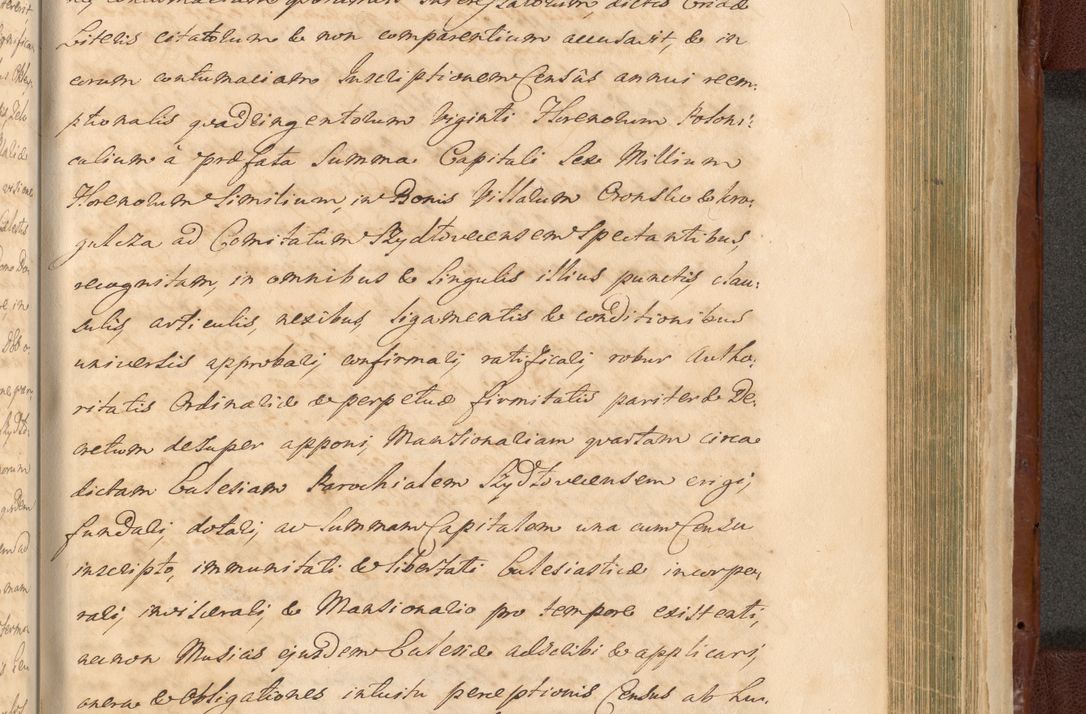 Literis citatorum & non comparentium accusavit, & in
eorum contumaciam Inscriptionem Census annui reem-
ptionalis quadringentorum Viginti Florenorum Poloni-
calium à præfata Summa Capitali Sex Millium
Florenorum Similium, in Bonis Villarum Oronsko & Kro-
gulcza ad Comitatum Szydłoveciensem Spectantibus,
recognitam, in omnibus & Singulis illius punctis, clau-
sulis, articulis, nexibus, ligamentis & conditionibus
universis approbari, confirmari, ratificari, robur Autho-
ritatis Ordinariæ & perpetuæ firmitatis pariter & De-
cretum desuper apponi, Mansionariam quartam circa
dictam Ecclesiam Parochialem Szydłoveciensem erigi,
fundari, dotari, ac Summam Capitalem una cum Censu
inscripto, immunitati & libertati Ecclesiasticæ incorpo-
rari, inviscerari, & Mansionario pro tempore existenti,
necnon Missas ejusdem Ecclesiæ adscribi & applicari,
onera & obligationes intuitu perceptionis Census ab hu-